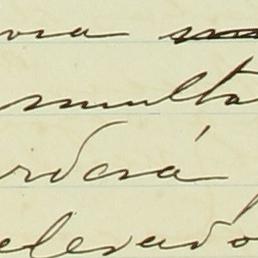 ora
multa
rderá
elevado